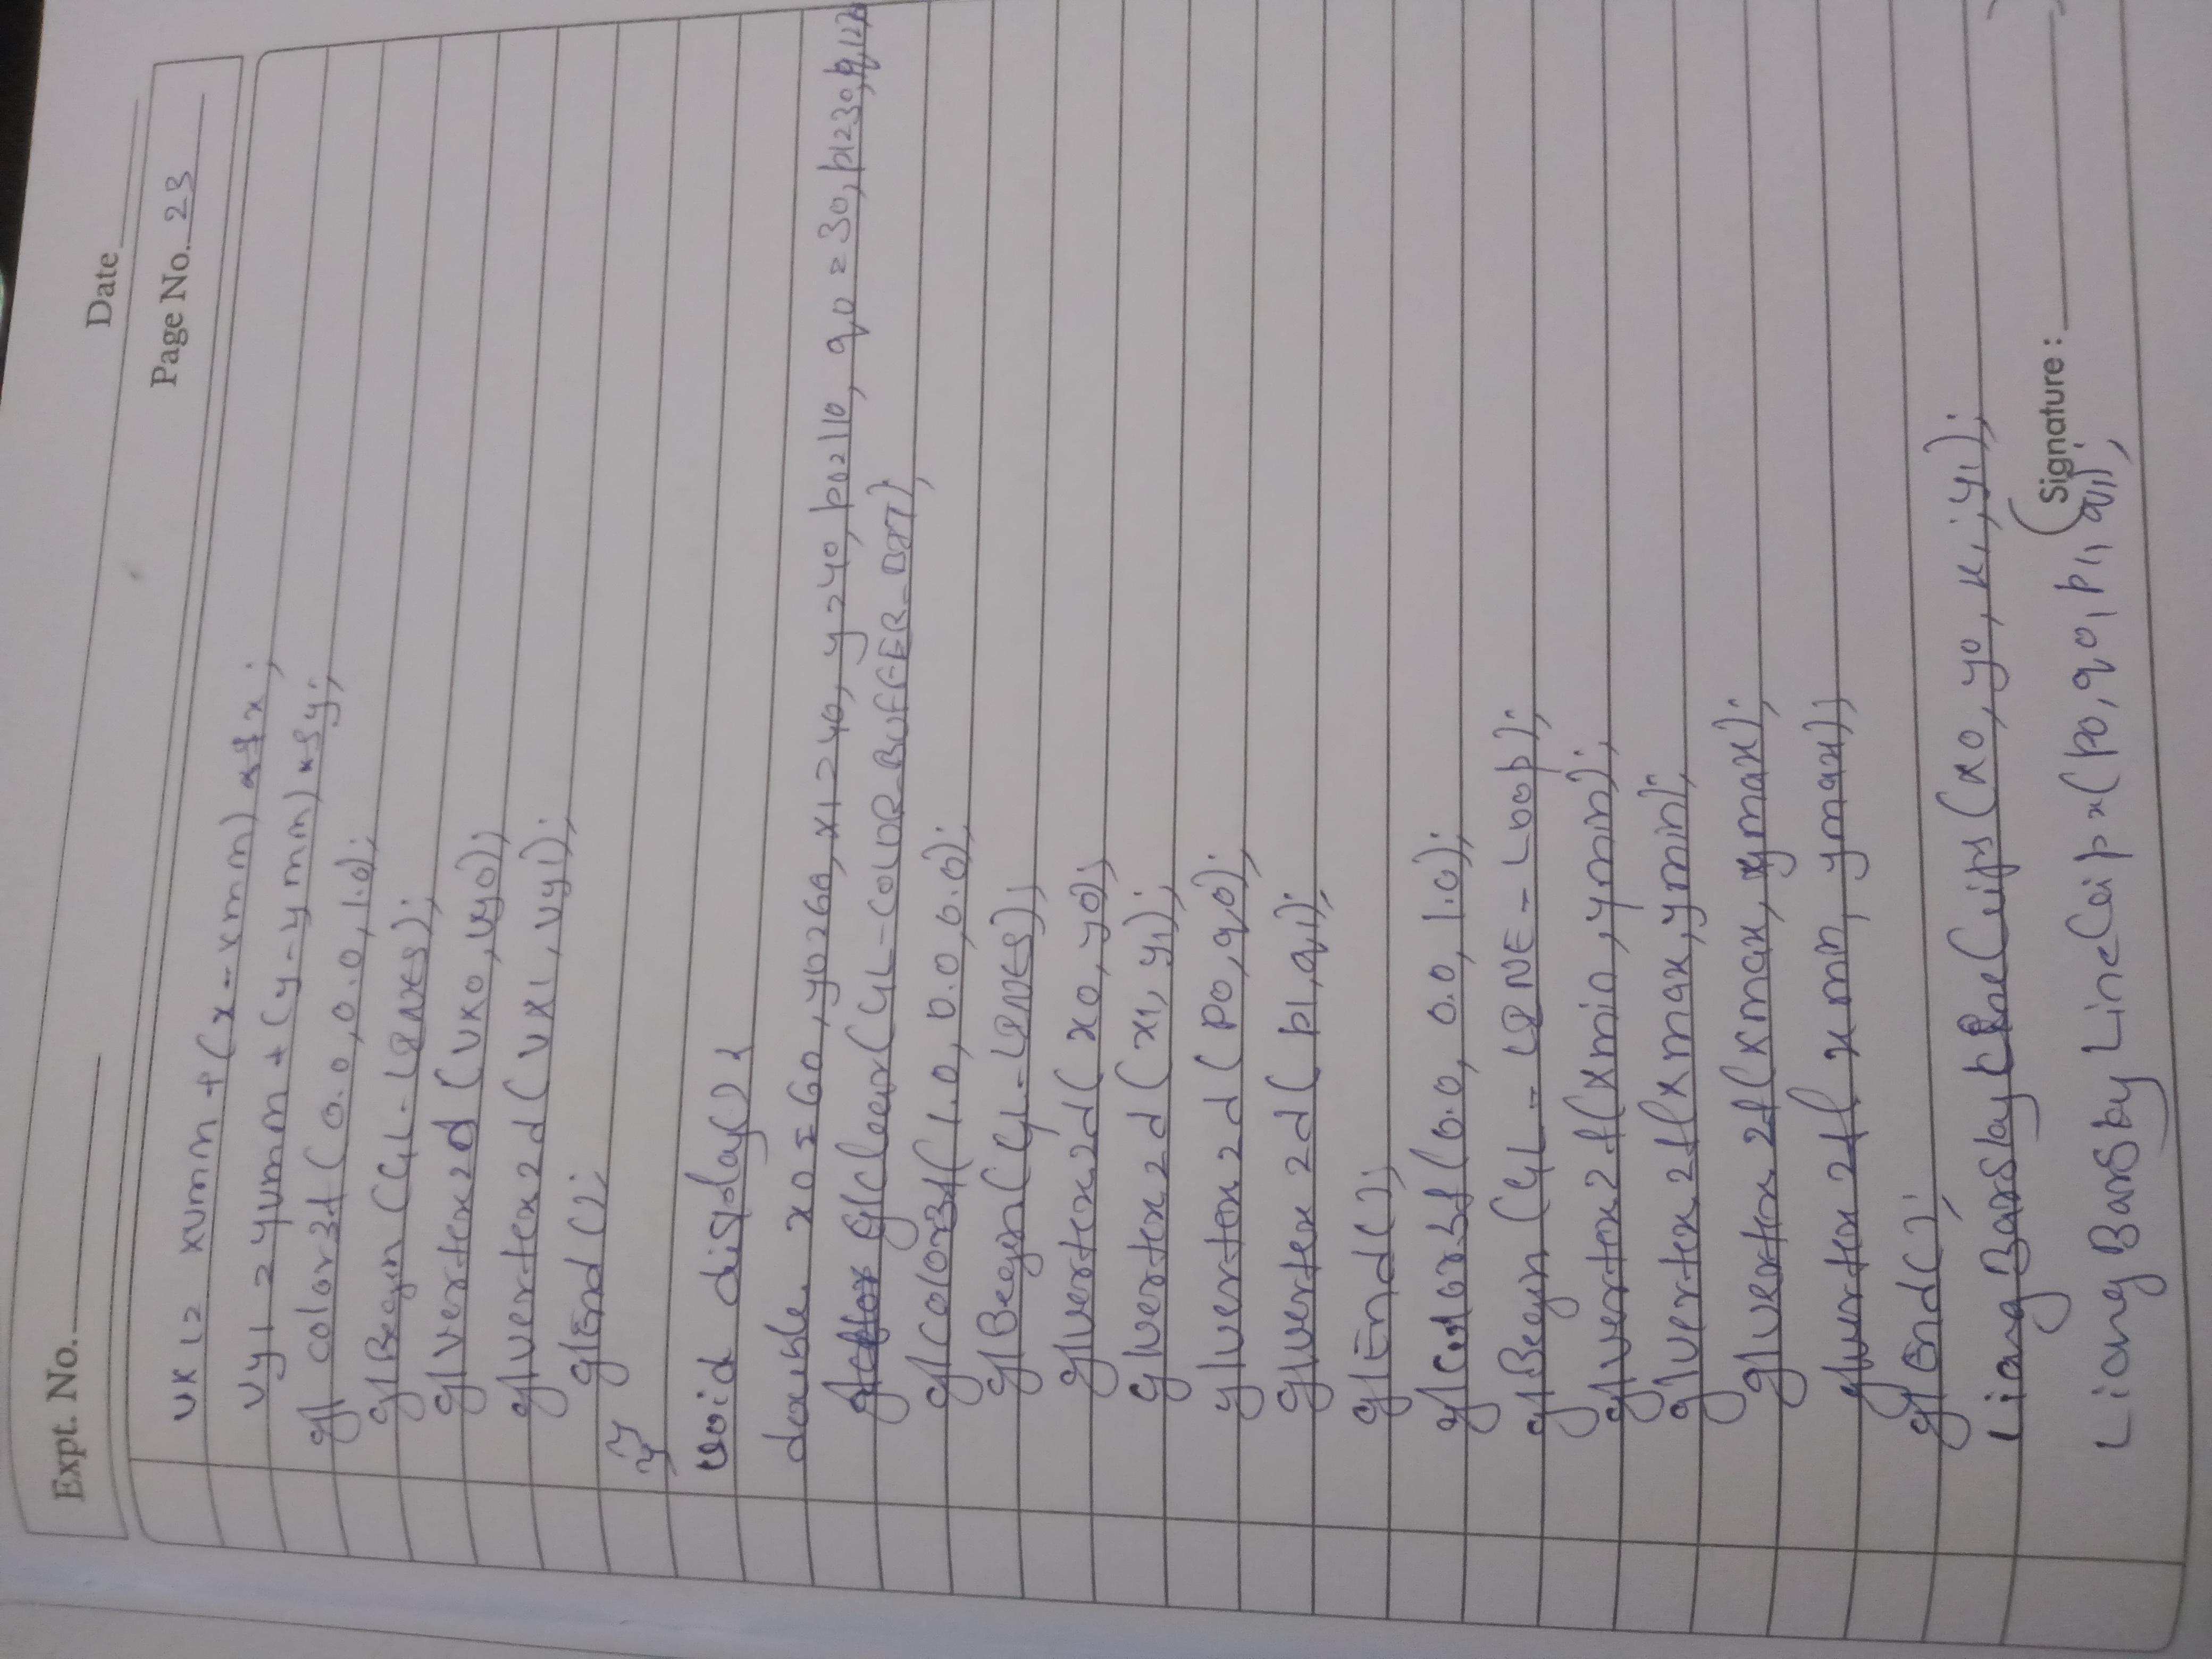 Expt. No.
Date
Page No. 23
vx1 = xvmin + (x - xmin) * sx;
vy1 = yvmin + (y - ymin) * sy;
gl color3f (0.0, 0.0, 1.0);
glBegin (GL-LINES);
glvertex2d (vx0, vy0);
glvertex2d (vx1, vy1);
glEnd();
}}
void display() {
double x0 = 60, y0=60, x1=40, y=40, p0=110, q0=30, p1=30,
glClear(GL-COLOR_BUFFER_BIT);
glcolor3f(1.0, 0.0, 0.0);
glBegin(GL-LINES);
glvertex2d(x0, y0);
glvertex2d(x1, y1);
glvertex2d(p0, q0);
glvertex2d(p1, q1);
glEnd();
glcolor3f(0.0, 0.0, 1.0);
glBegin(GL-LINE-Loop);
glvertex2f(xmin, ymin);
glvertex2f(xmax, ymin);
glvertex2f(xmax, ymax);
glvertex2f(xmin, ymax);
glEnd();
(x0, y0, x1, y1);
(p0, q0, p1, q1);
Signature :